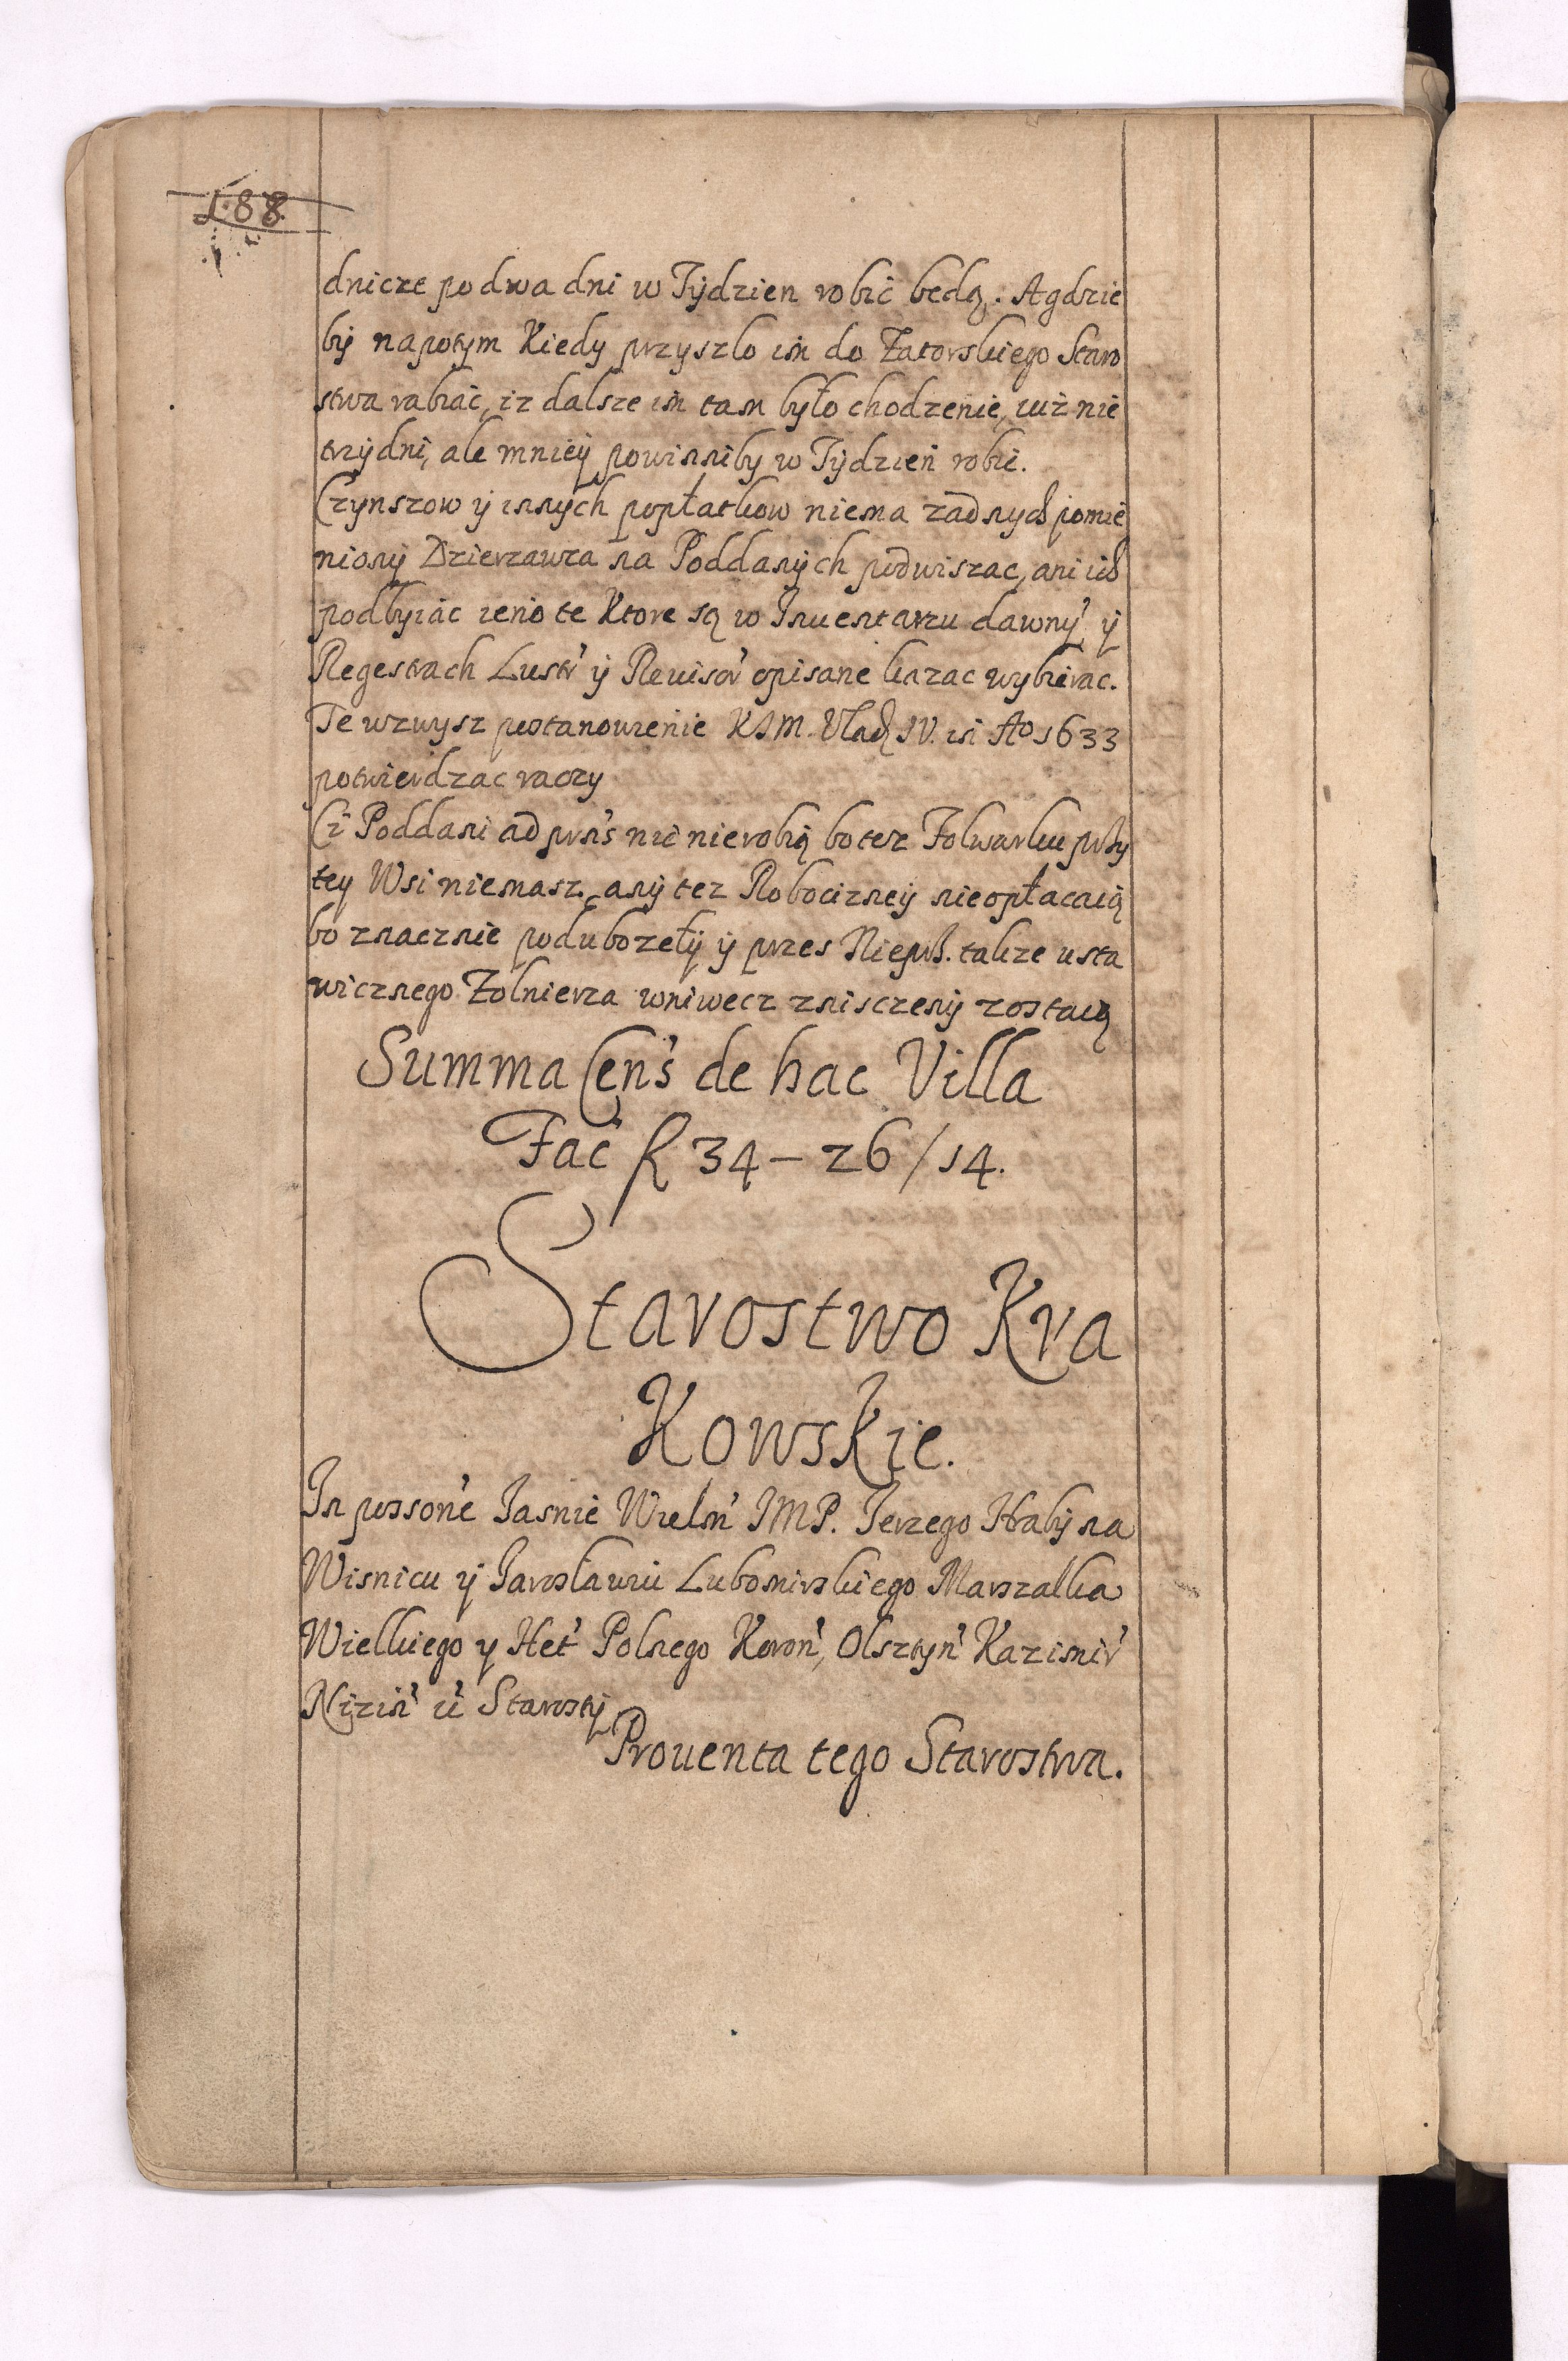 188
dnicze po dwa dni w Tydzien robić będą. A gdzie
by napotym Kiedy przyszlo im do Zatorskiego Staro
stwa rabiać, iz dalsze im tam było chodzenie, iuż nie
trzy dni, ale mniey powinniby w Tydzień robić.
Czynszow ÿ innych popłatkow niema zadnych pomie
niony Dzierzawca na Poddanych podwiszac, ani ich
podbyiać ieno te Ktore są w Inuentarzu dawny' ÿ
Regestrach Lustr' ÿ Reuisor' opisane kazac wybierac.
Te wzwysz postanowienie KJM. Vlad IV. in Ao 1633
potwierdzac raczy
Ci Poddani ad prns' nic nierobią bo tez Folwarku przy
tey Wsi niemasz, any tez Robocizney nieopłacaią
bo znacznie podubozeły ÿ przes Niepł. takze usta
wicznego Zolnierza wniwecz zniszczeny zostaią
Summa Cens' de hac Villa
Fac' fl 34 – 26 / 14.
Starostwo Kra
Kowskie.
In posson'e Jasnie Wielm' JMP. Jerzego Hraby na
Wisnicu ÿ Jarosławiu Lubomirskiego Marszalka
Wielkiego y Het' Polnego Koron', Olsztyn' Kazimir'
Nizin' ić Starosty
Prouenta tego Starostwa.